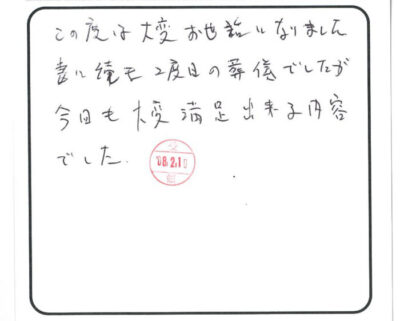 この度は大変お世話になりました
妻に続き2度目の葬儀でしたが
今回も大変満足出来る内容
でした.
'08.2.10